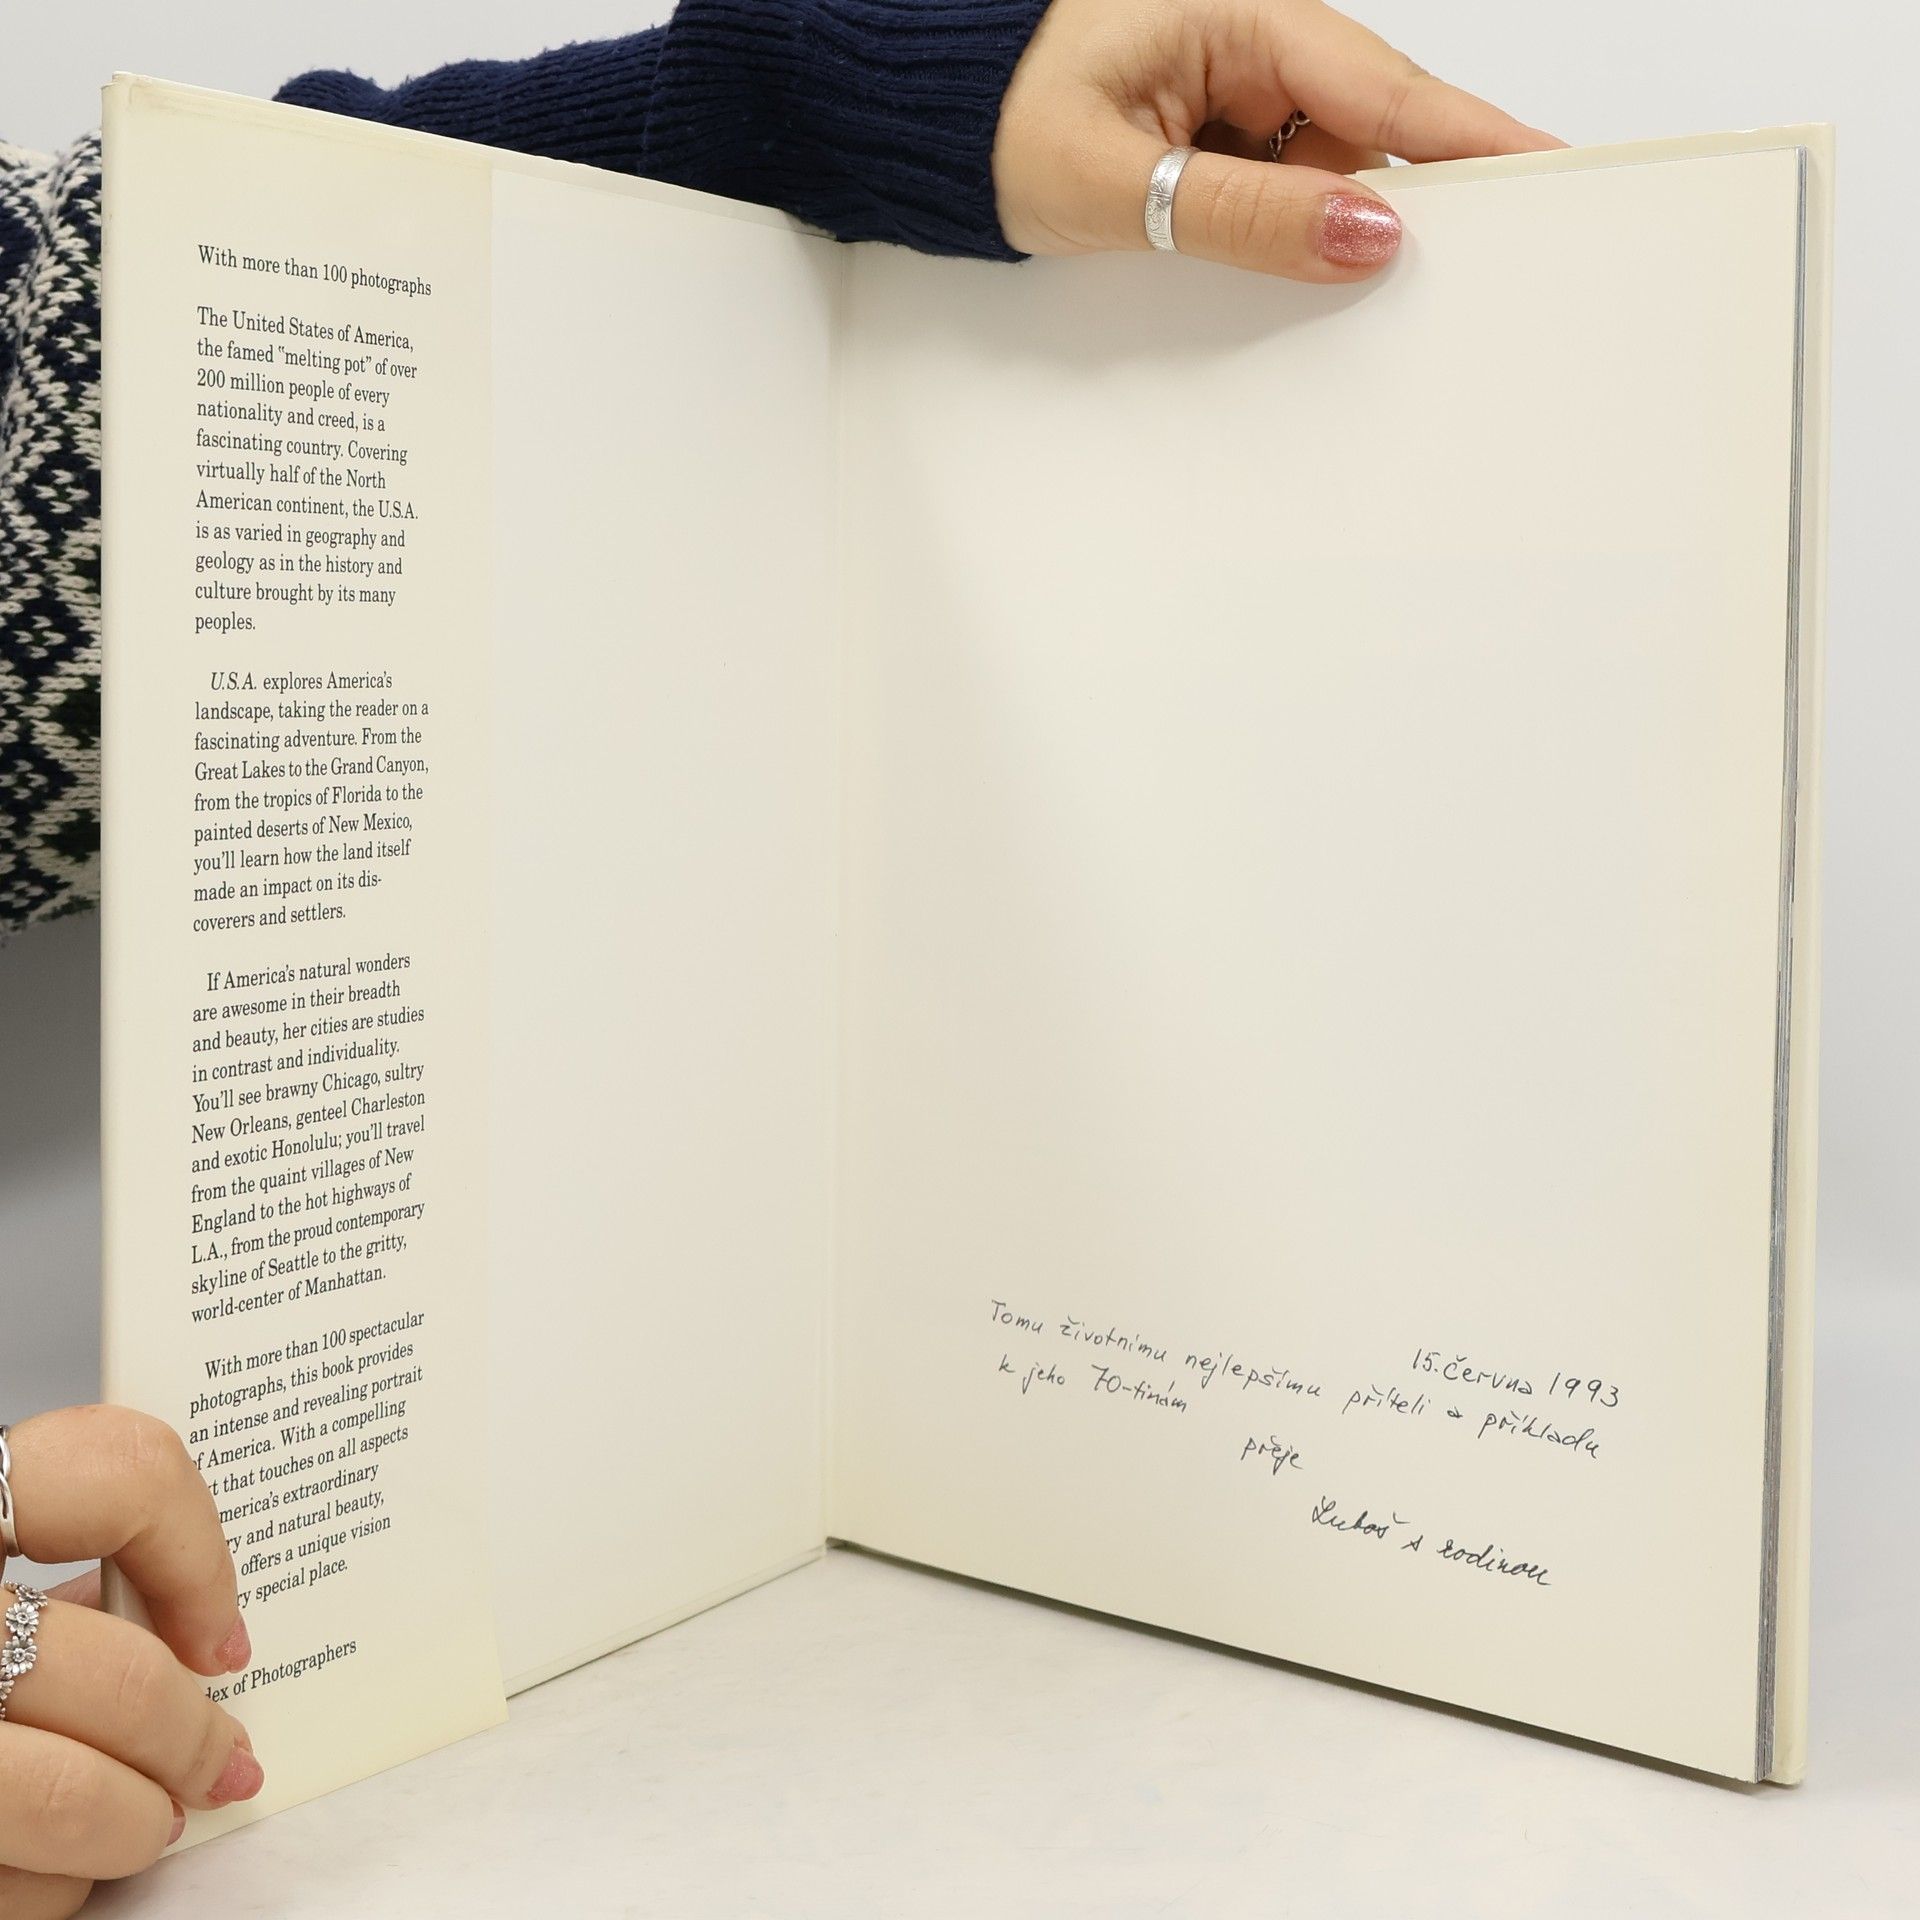 With more than 100 photographs
The United States of America,
the famed "melting pot" of over
200 million people of every
nationality and creed, is a
fascinating country. Covering
virtually half of the North
American continent, the U.S.A.
is as varied in geography and
geology as in the history and
culture brought by its many
peoples.
U.S.A. explores America's
landscape, taking the reader on a
fascinating adventure. From the
Great Lakes to the Grand Canyon,
from the tropics of Florida to the
painted deserts of New Mexico,
you'll learn how the land itself
made an impact on its dis-
coverers and settlers.
If America's natural wonders
are awesome in their breadth
and beauty, her cities are studies
in contrast and individuality.
You'll see brawny Chicago, sultry
New Orleans, genteel Charleston
and exotic Honolulu; you'll travel
from the quaint villages of New
England to the hot highways of
L.A., from the proud contemporary
skyline of Seattle to the gritty,
world-center of Manhattan.
With more than 100 spectacular
photographs, this book provides
an intense and revealing portrait
of America. With a compelling
that touches on all aspects
merica's extraordinary
and natural beauty,
offers a unique vision
special place.
dex of Photographers
15. června 1993
Tomu životnímu nejlepšímu příteli a příkladu
k jeho 70-tinám
přeje
Luboš s rodinou